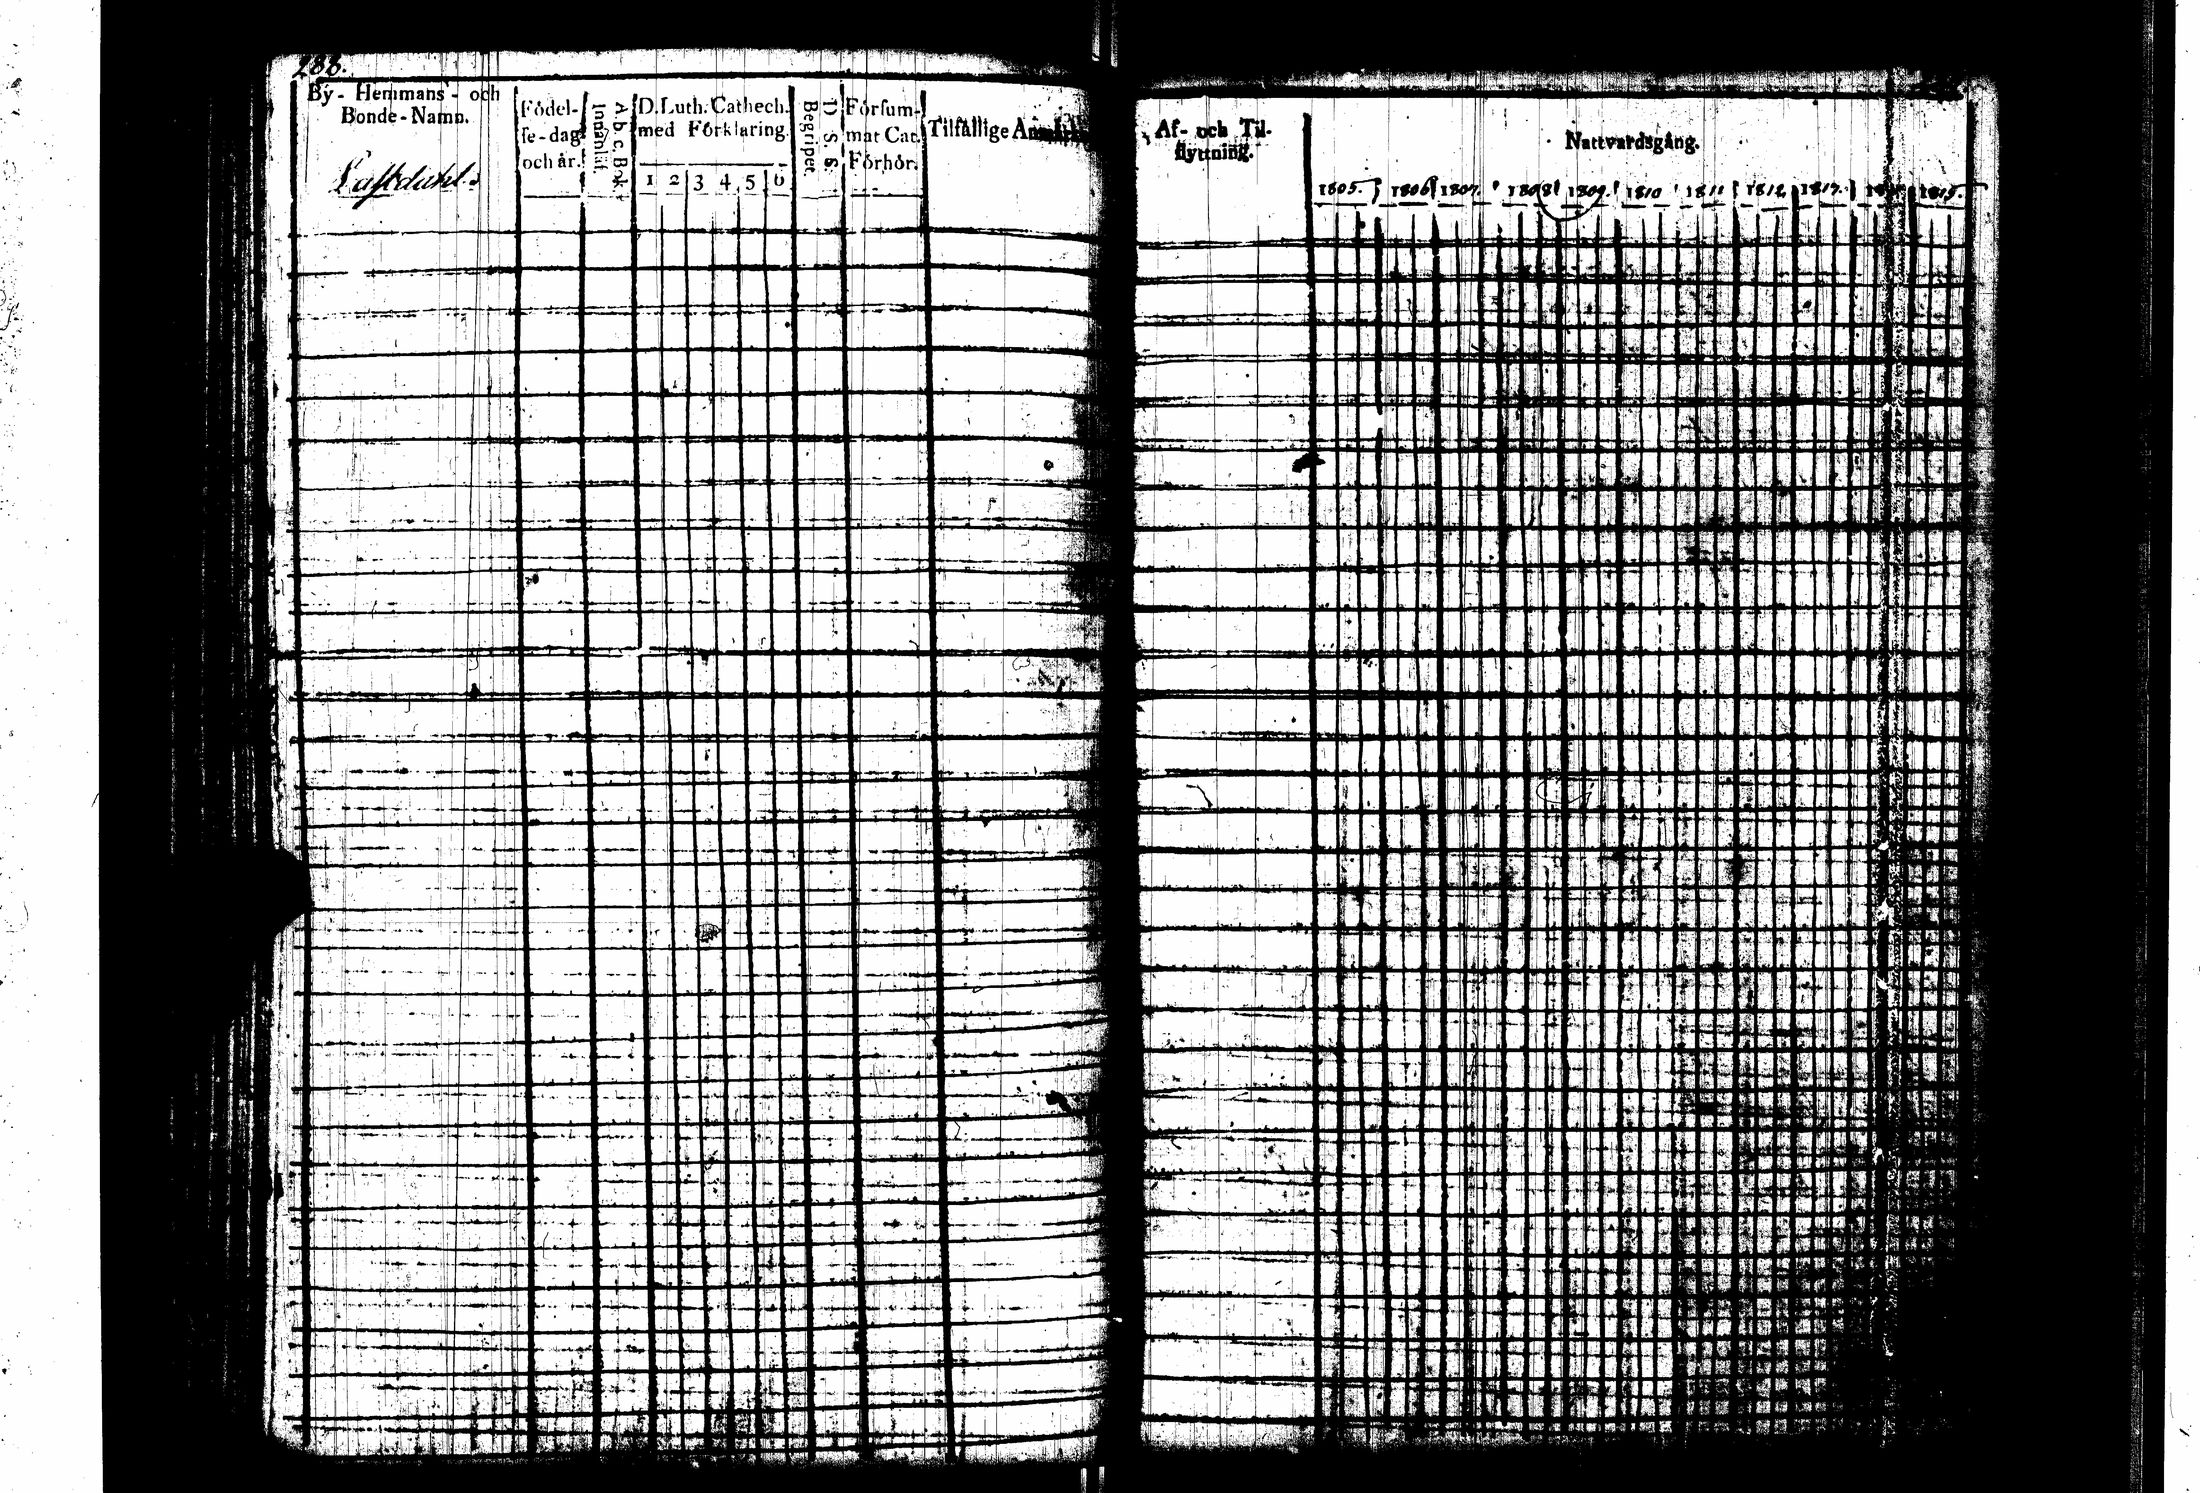 288.
By- Hemmans- och
Bonde-Namn.
Födel-
se-dag
och år.
A.b.c Bok.
Innanläs.
D. Luth. Cathech.
med Förklaring.
1 2 3 4 5 6
D. S. S.
Begripet.
Försum-
mat Cat.
Förhör.
Tilfällige
Af- och Til-
flyttning.
Nattvardsgång.
1805. 1806 1807. 1808 1809. 1810 1811 1812 1815.